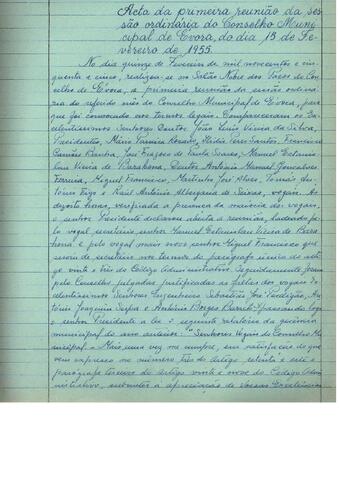 Acta da primeira reunião da ses-
são ordinária do Conselho Muni-
cipal de Évora, do dia 15 de Fe-
vereiro de 1955.
No dia quinze de Fevereiro de mil novecentos e cin-
quenta e cinco, realizou-se no Salão Nobre dos Paços do Con-
celho de Évora, a primeira reunião da sessão ordiná-
ria do referido mês do Conselho Municipal de Évora, pa-
que foi convocado nos termos legais. Compareceram os Ex-
celentíssimos Senhores Doutor João Luís Vieira da Silva,
Presidente, Mário Rosado, Francisco
Barba, José Fragoso de Soares, Manuel
Vieira de Barahona, Doutor António Manuel Gonçalves
Ferreira, Miguel Francisco, Martinho José Alves, Tomás An-
tónio e Raúl António de Seixas, vogais. Às
dezoito horas, verificada a presença da maioria dos vogais,
o senhor Presidente declarou aberta a reunião,
pelo vogal, secretário, senhor Manuel Vieira de Bara-
hona e pelo vogal mais novo senhor Miguel Francisco que
serviu de secretário nos termos do parágrafo único do arti-
go vinte e três do Código Administrativo. Seguidamente foram
pelo Conselho, julgadas justificadas as faltas dos vogais Ex-
celentíssimos Senhores Engenheiro Sebastião José Perdigão, An-
tónio Joaquim e António Borges Barreto. passando logo
o senhor Presidente a ler o seguinte relatório da gerência
municipal do ano anterior: "Senhores Vogais do Conselho Mu-
nicipal. Mais uma vez me cumpre, em satisfação do que
vem expresso no número três do artigo setenta e sete e
parágrafo terceiro do artigo vinte e nove do Código Admi-
nistrativo, submeter à apreciação de Vossas Excelências